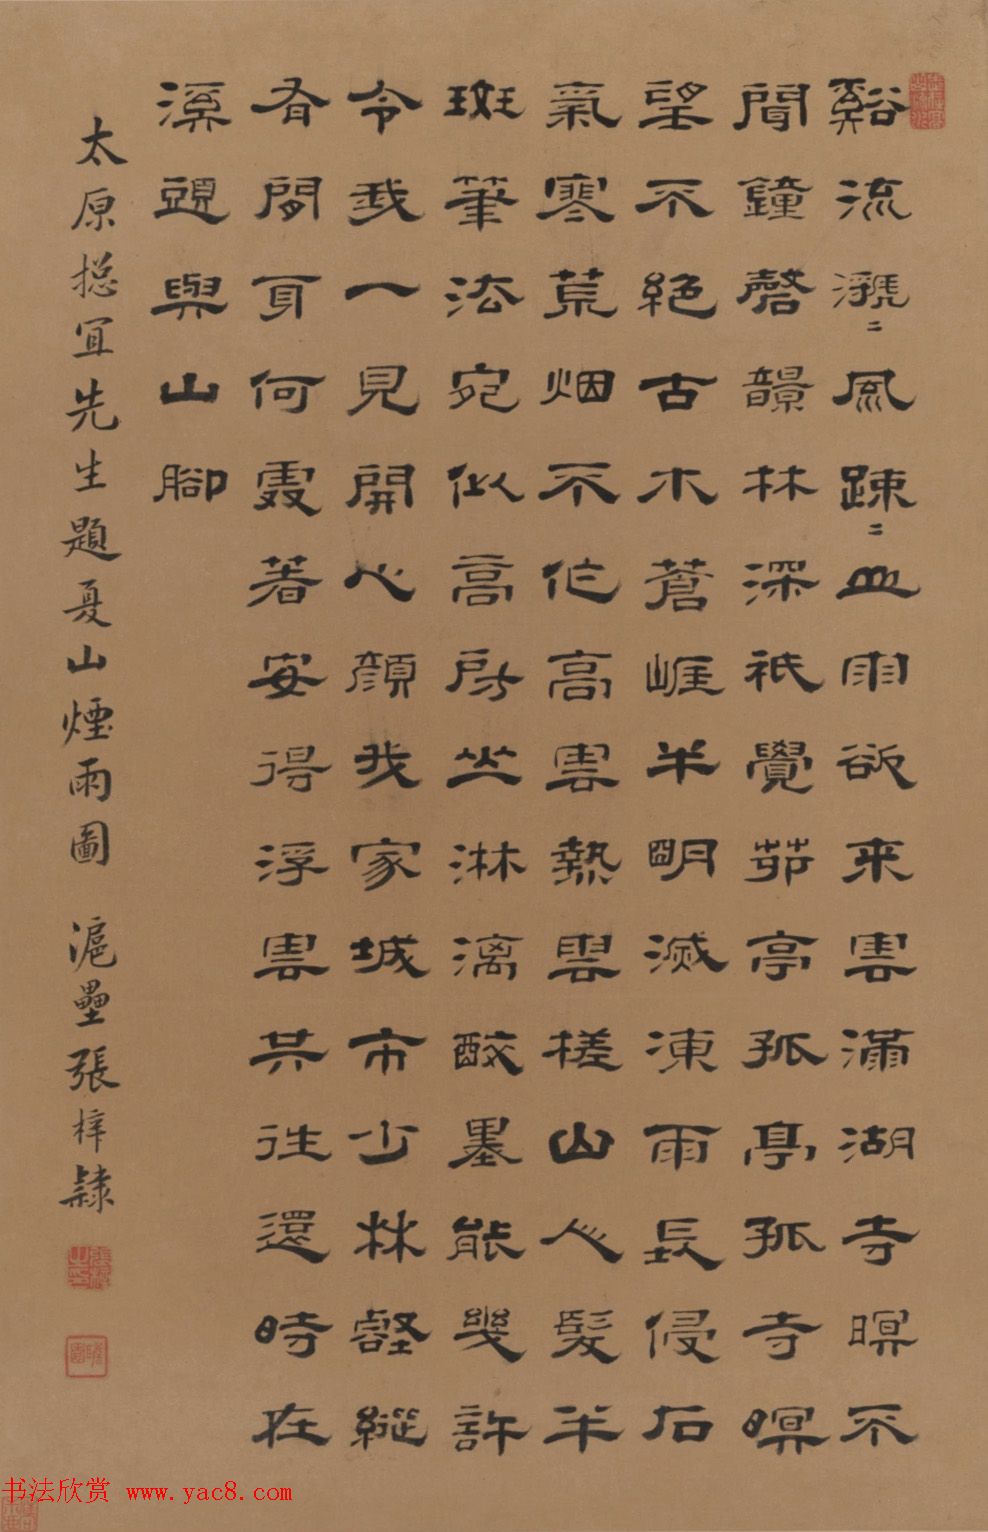 谿流灑〻風疎〻血雨欲來雲滿湖寺暝不
聞鐘磬韻林深祇覺茆亭孤亭孤寺暝
望不絕古木蒼崕半明滅凍雨長侵石
氣寒荒烟不作高雲熱雲槎山人髮半
斑筆法宛似高房山淋漓酸墨能幾許
令我一見開心顏我家城市少林壑縱
有閒身何處著安得浮雲共往還時在
溪頭與山腳
太原揔宜先生題夏山煙雨圖 滬壘張梓隸
书法欣赏 www.yac8.com